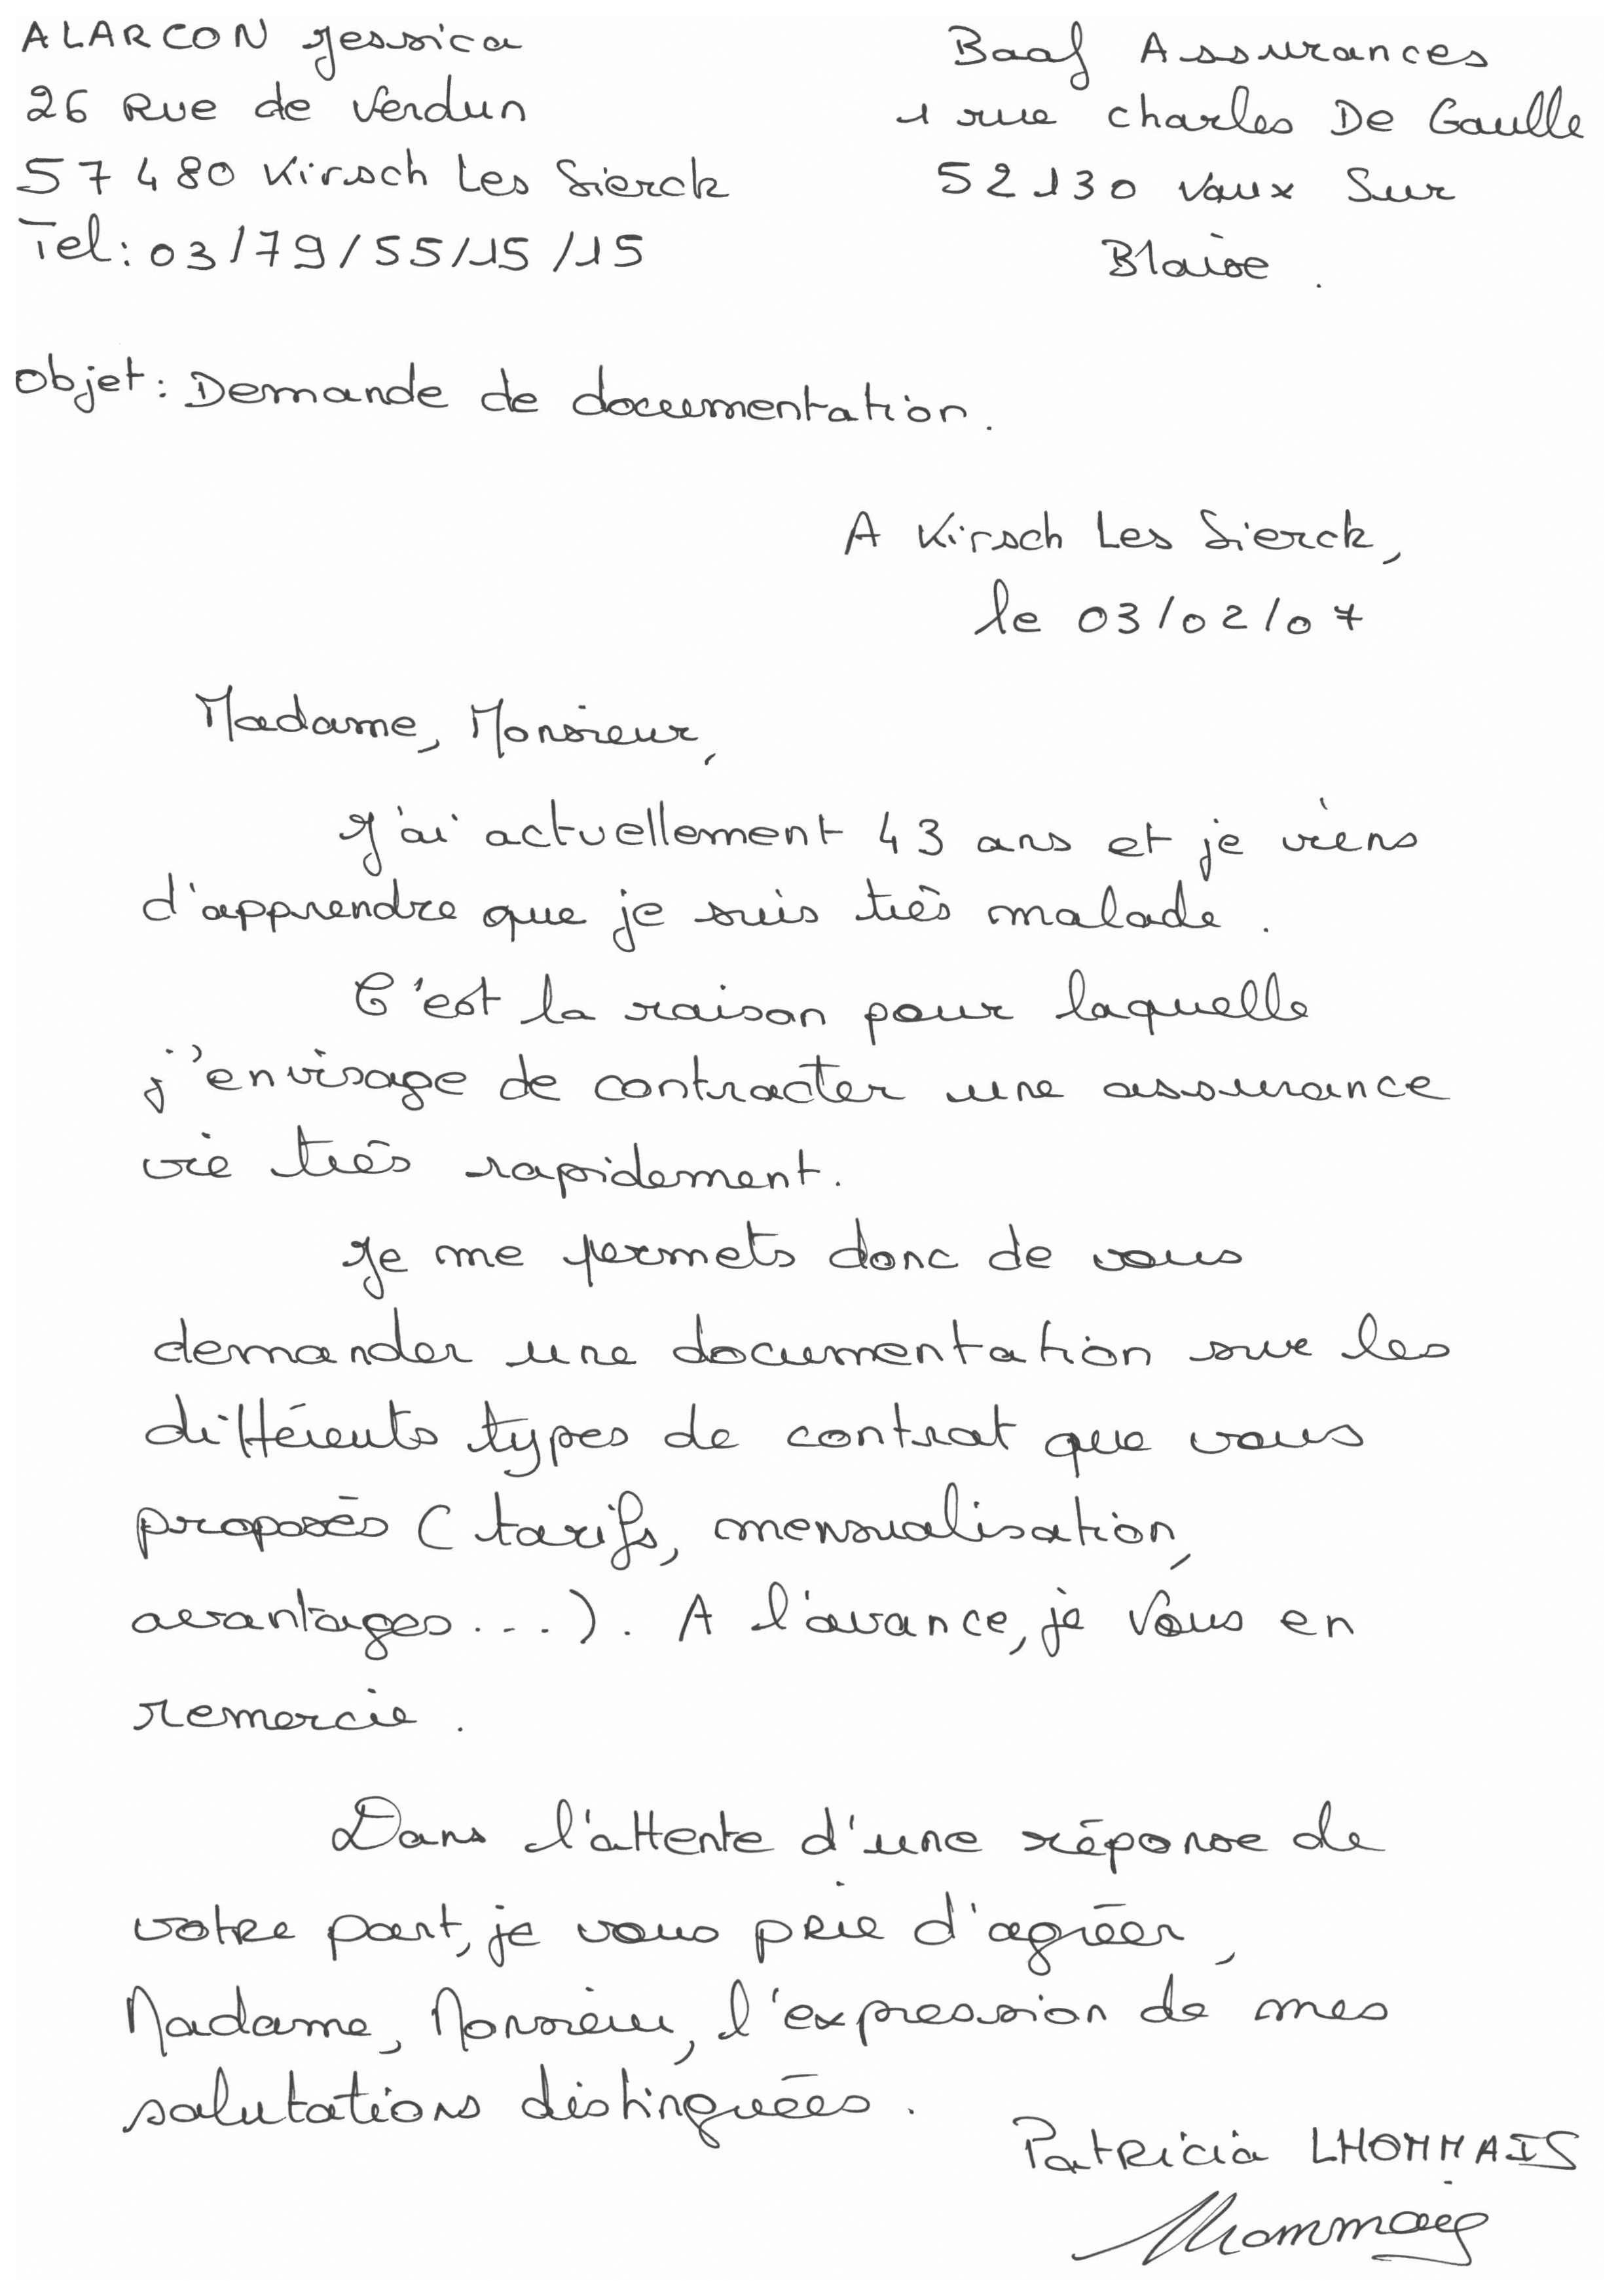 ALARCON Jessica
26 Rue de Verdun
57480 Kirsch Les Sierck
Tel: 03/79/55/15/15
Baaf Assurances
1 rue charles De Gaulle
52130 Vaux Sur
Blaise.
Objet: Demande de documentation.
A Kirsch Les Sierck,
le 03/02/07
Madame, Monsieur,
J'ai actuellement 43 ans et je viens
d'apprendre que je suis très malade.
C'est la raison pour laquelle
j'envisage de contracter une assurance
vie très rapidement.
Je me permets donc de vous
demander une documentation sur les
différents types de contrat que vous
proposés (tarifs, mensualisation,
avantages...). A l'avance, je vous en
remercie.
Dans l'attente d'une réponse de
votre part, je vous prie d'agréer,
Madame, Monsieur, l'expression de mes
salutations distinguées.
Patricia LHOMMAIS
Lhommais